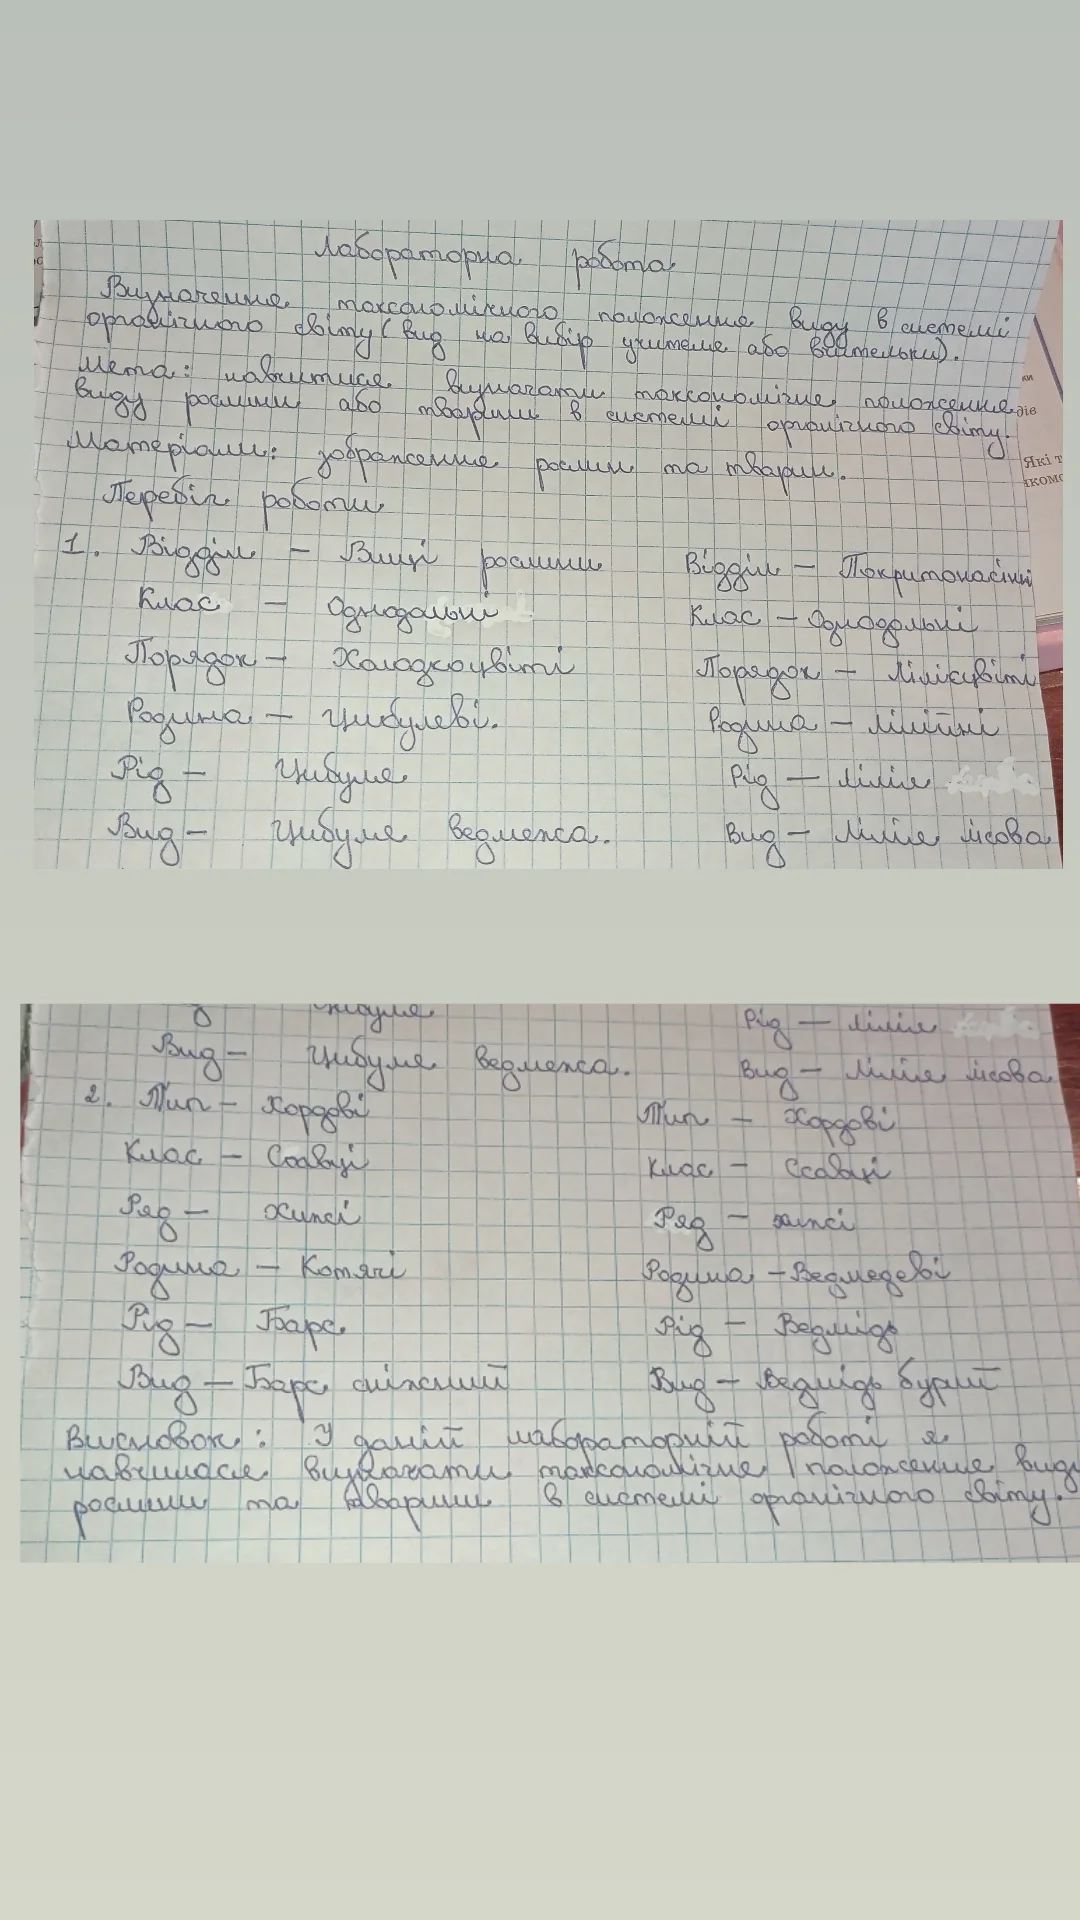 Лабораторна робота
Визначення таксономічного положення виду в системі
органічного світу (вид на вибір учителя або вчительки).
Мета: навчитися визначати таксономічне положення
виду рослини або тварини в системі органічного світу.
Матеріали: зображення рослин та тварин.
Перебіг роботи
1. Відділ – Вищі рослини
Клас – Однодольні
Порядок – Холодкоцвіті
Родина – Цибулеві.
Рід – Цибуля
Вид – Цибуля ведмежа.
Відділ – Покритонасінні
Клас – Однодольні
Порядок – Лілієцвіті
Родина – Лілійні
Рід – Лілія
Вид – Лілія лісова
ки
дів
Які т
ікомо
Цибуля
Рід – Лілія
Вид – Цибуля ведмежа.
Вид – Лілія лісова
2. Тип – Хордові
Клас – Ссавці
Ряд – Хижі
Родина – Котячі
Рід – Барс
Вид – Барс сніжний
Тип – Хордові
Клас – Ссавці
Ряд – хижі
Родина – Ведмедеві
Рід – Ведмідь
Вид – Ведмідь бурий
Висновок: У даній лабораторній роботі я
навчилася визначати таксономічне положення виду
рослини та тварини в системі органічного світу.